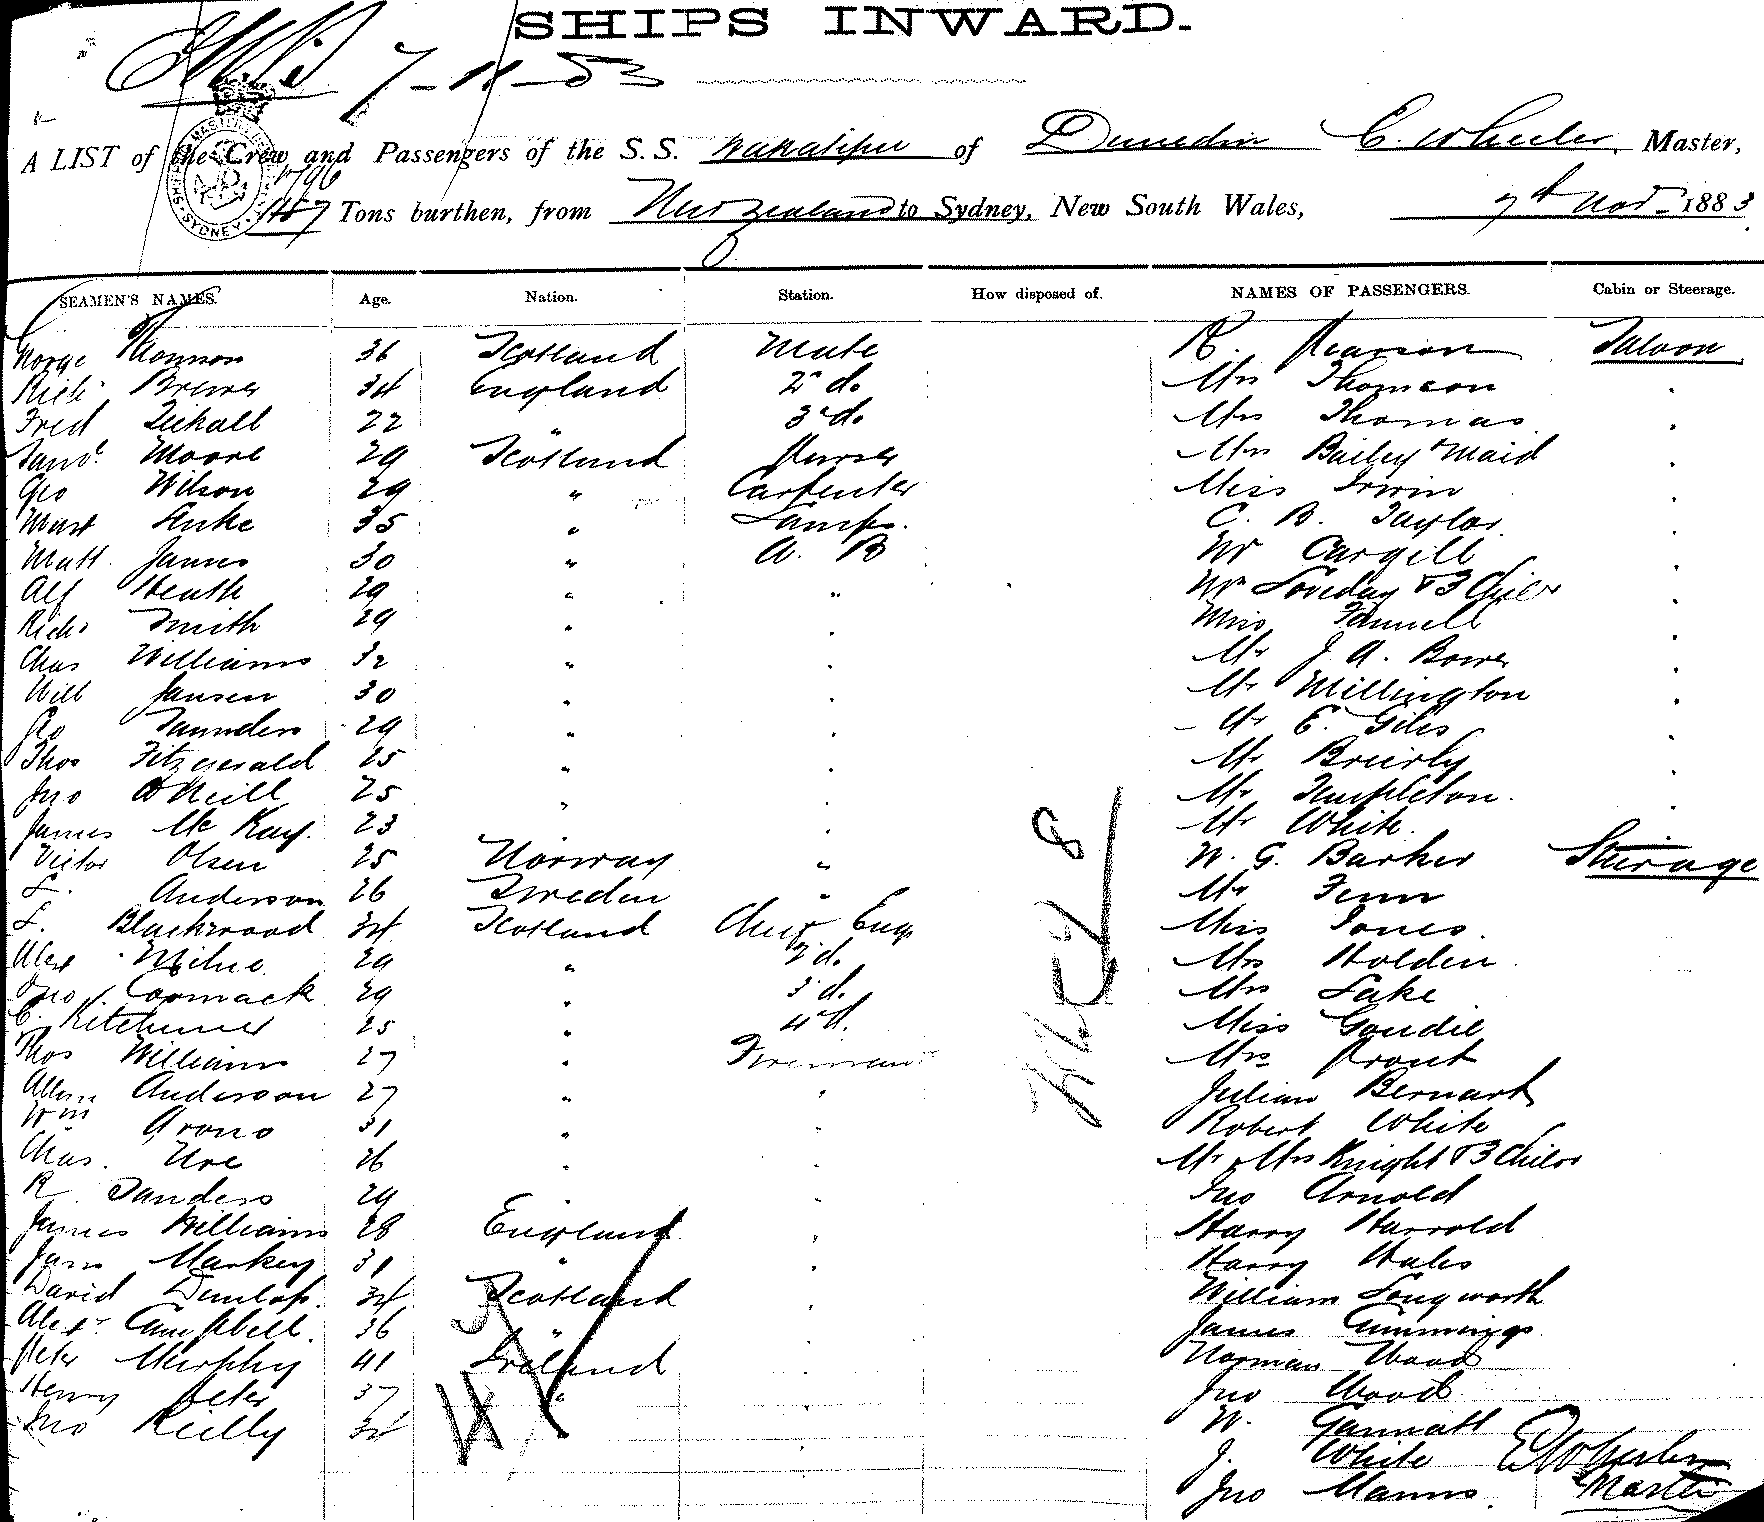 SHIPS INWARD.
7-11-83
A LIST of the Crew and Passengers of the S.S. Wakatipu of Dunedin E. Wheeler, Master,
1796
Tons burthen, from New Zealand to Sydney, New South Wales, 7th Nov 1883.
SEAMEN'S NAMES. Age. Nation. Station. How disposed of. NAMES OF PASSENGERS. Cabin or Steerage.
George Thomson 36 Scotland Mate R. Pearson Saloon
Richd Brewer 34 England 2d do. Mrs Thomson
Fred 22 " 3rd do. Mrs Thomas
Moore 29 Scotland Purser Mrs Bailey & Maid
Geo Wilson 29 " Carpenter Miss Irwin
35 " Lamps. C. B. Taylor
Matt James 30 " A. B Mr Cargill
Alf Heath 29 " " Mr & 3 Chilr
Richd Smith 29 " " Miss
Chas Williams 32 " " Mr J. A. Bower
Will Jansen 30 " " Mr Millington
Geo Saunders 29 " " Mr E. Giles
Thos Fitzgerald 25 " " Mr Brierly
Jno O'Neill 25 " " Mr Templeton.
James Mc Kay. 23 " " Mr White.
Victor Olsen 25 Norway " W. G. Barker Steerage
L. Anderson 26 Sweden " Mr Fenn
L. Blackwood 34 Scotland Chief Eng Miss Jones.
Alex Milne 29 " 2d. Mrs Holden
Jno Cormack 29 " 3d. Mrs Lake
C. Kitchener 25 " 4d. Miss Goudie
Thos Williams 27 " Fireman Mrs Prout
Anderson 27 " " Julian Bernart
Wm 31 " " Robert White
Chas. Ure 26 " " Mr & Mrs Knight & 3 Chilr
R. Sanders 29 " " Jno Arnold
James Williams 28 England " Harry Harrold
Markey 31 " " Harry Wales
David Dunlop. 34 Scotland " William Longworth
Alexr Campbell. 36 " " James Cummings
Peter Murphy 41 Ireland Norman Wood
Henry Peter 37 " Jno Wood
Jno Reilly 34 W. Gannatt
J. White E Wheeler
Jno Manns. Master